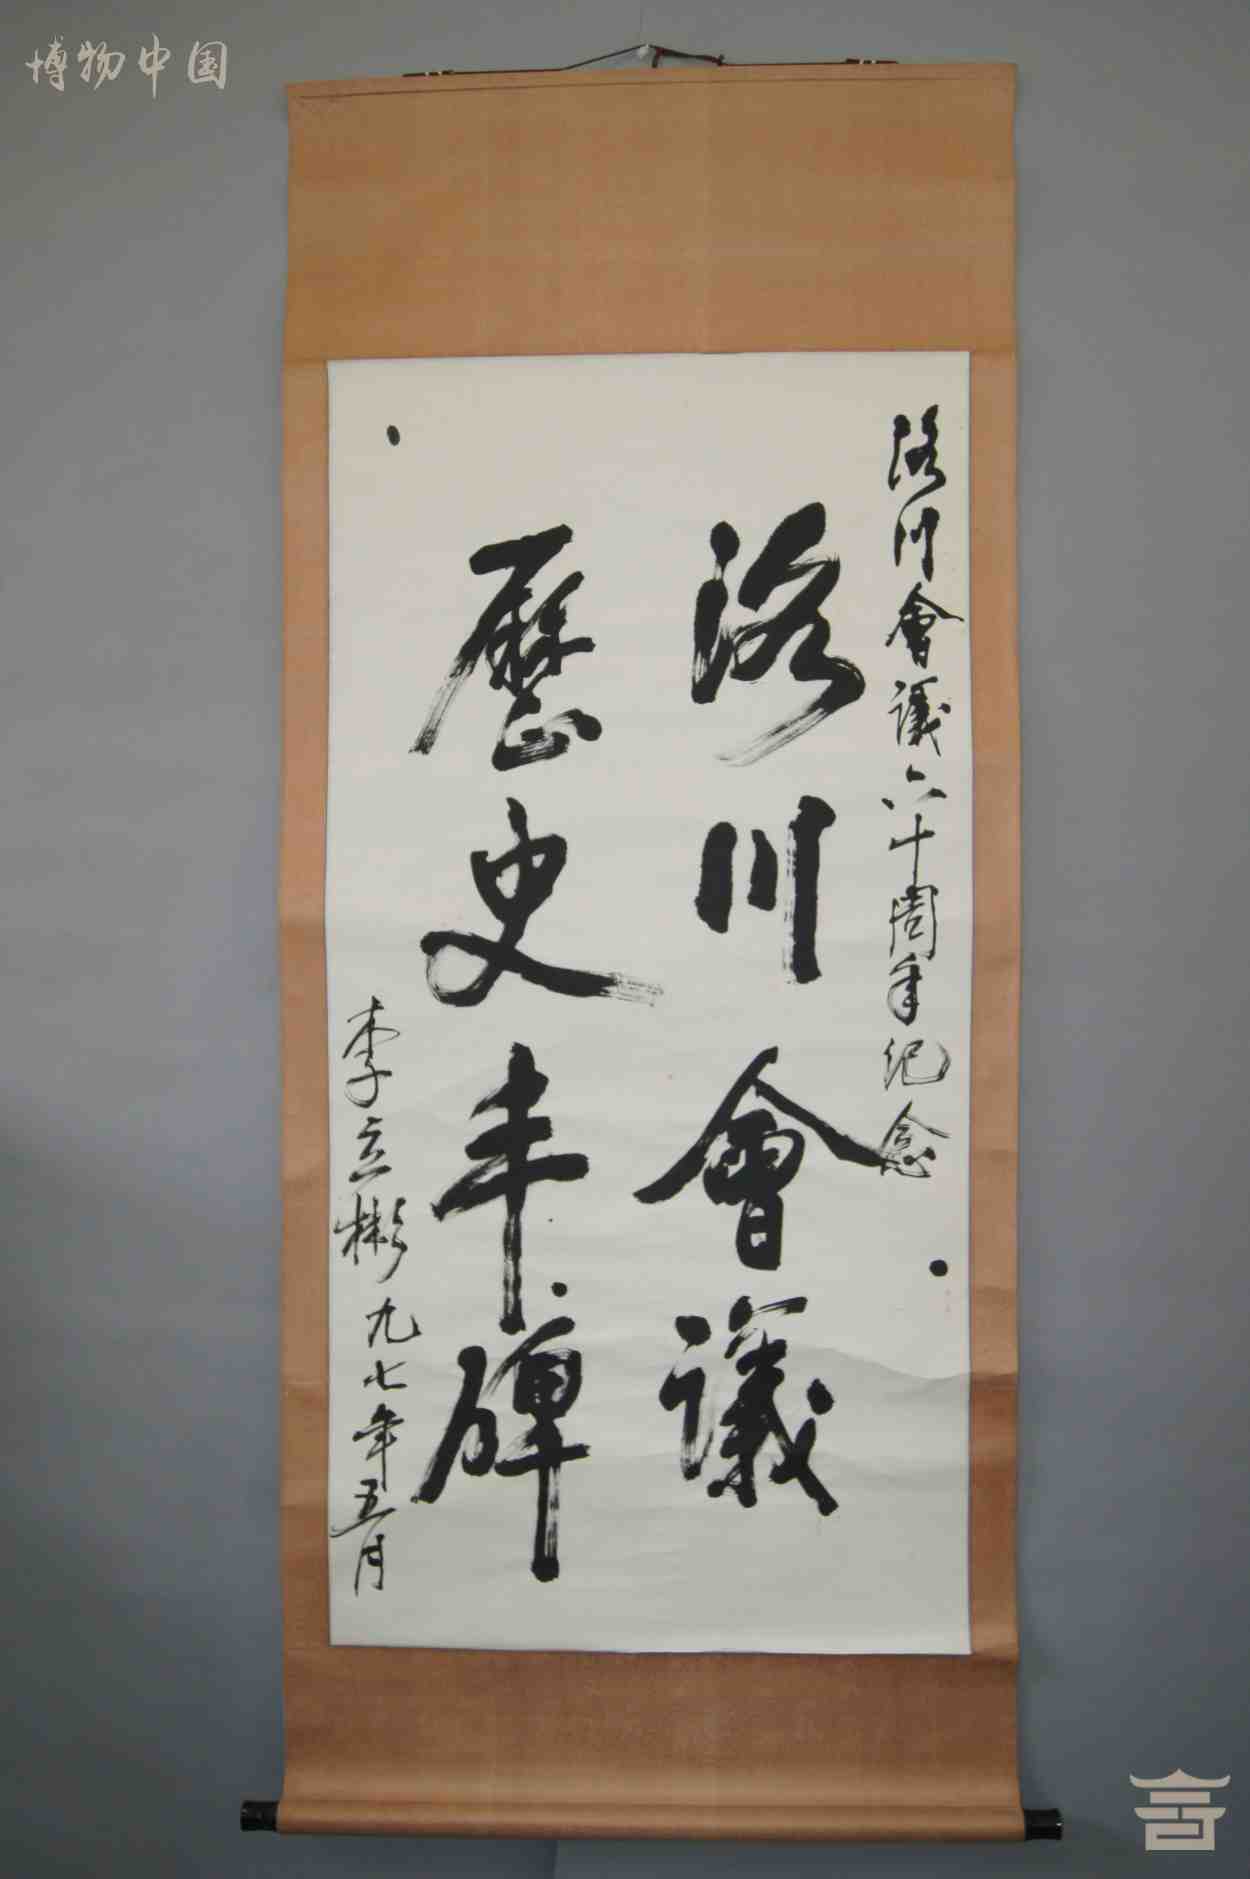 博物中国
洛川會議六十周年纪念
洛川會議
歷史丰碑
李立彬 九七年五月